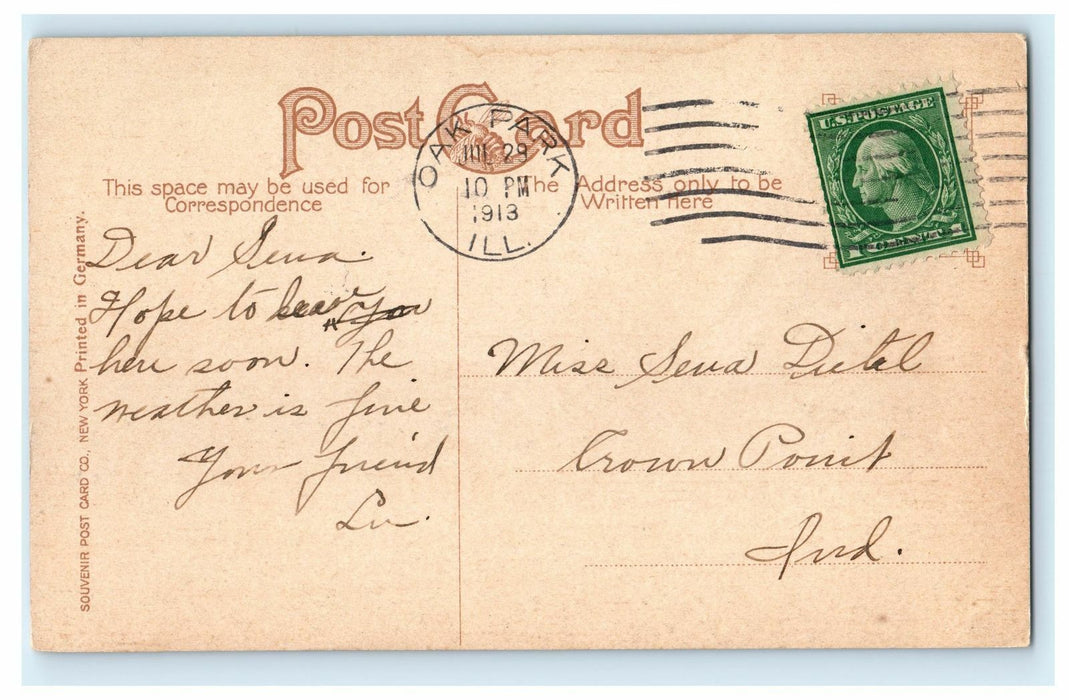 Post Card
OAK PARK
JUL 29
10 PM
1913
ILL.
U.S. POSTAGE
1 CENT 1
This space may be used for
Correspondence
The Address only to be
Written Here
Dear Seva.
Hope to hear
here soon. The
weather is fine
Your friend
Miss Seva Dietel
Crown Point
Ind.
SOUVENIR POST CARD CO., NEW YORK Printed in Germany.